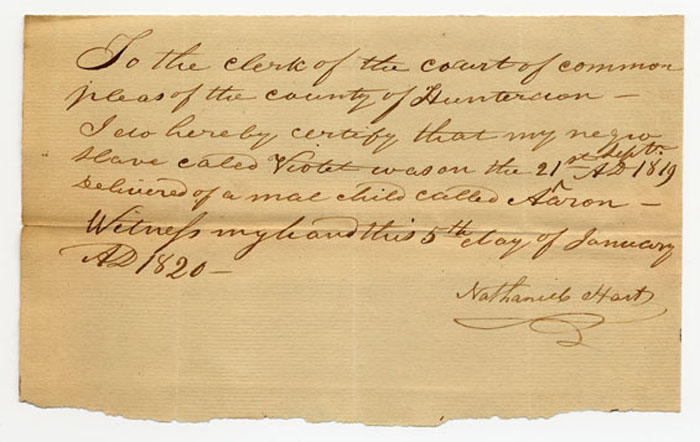 To the clerk of the court of common
pleas of the county of Hunterdon –
I do hereby certify that my negro
slave caled Violet was on the 21st Sept. AD 1819
Delivered of a mal child called Aaron –
Witness my hand this 5th day of January
AD 1820 –
Nathaniel Hart